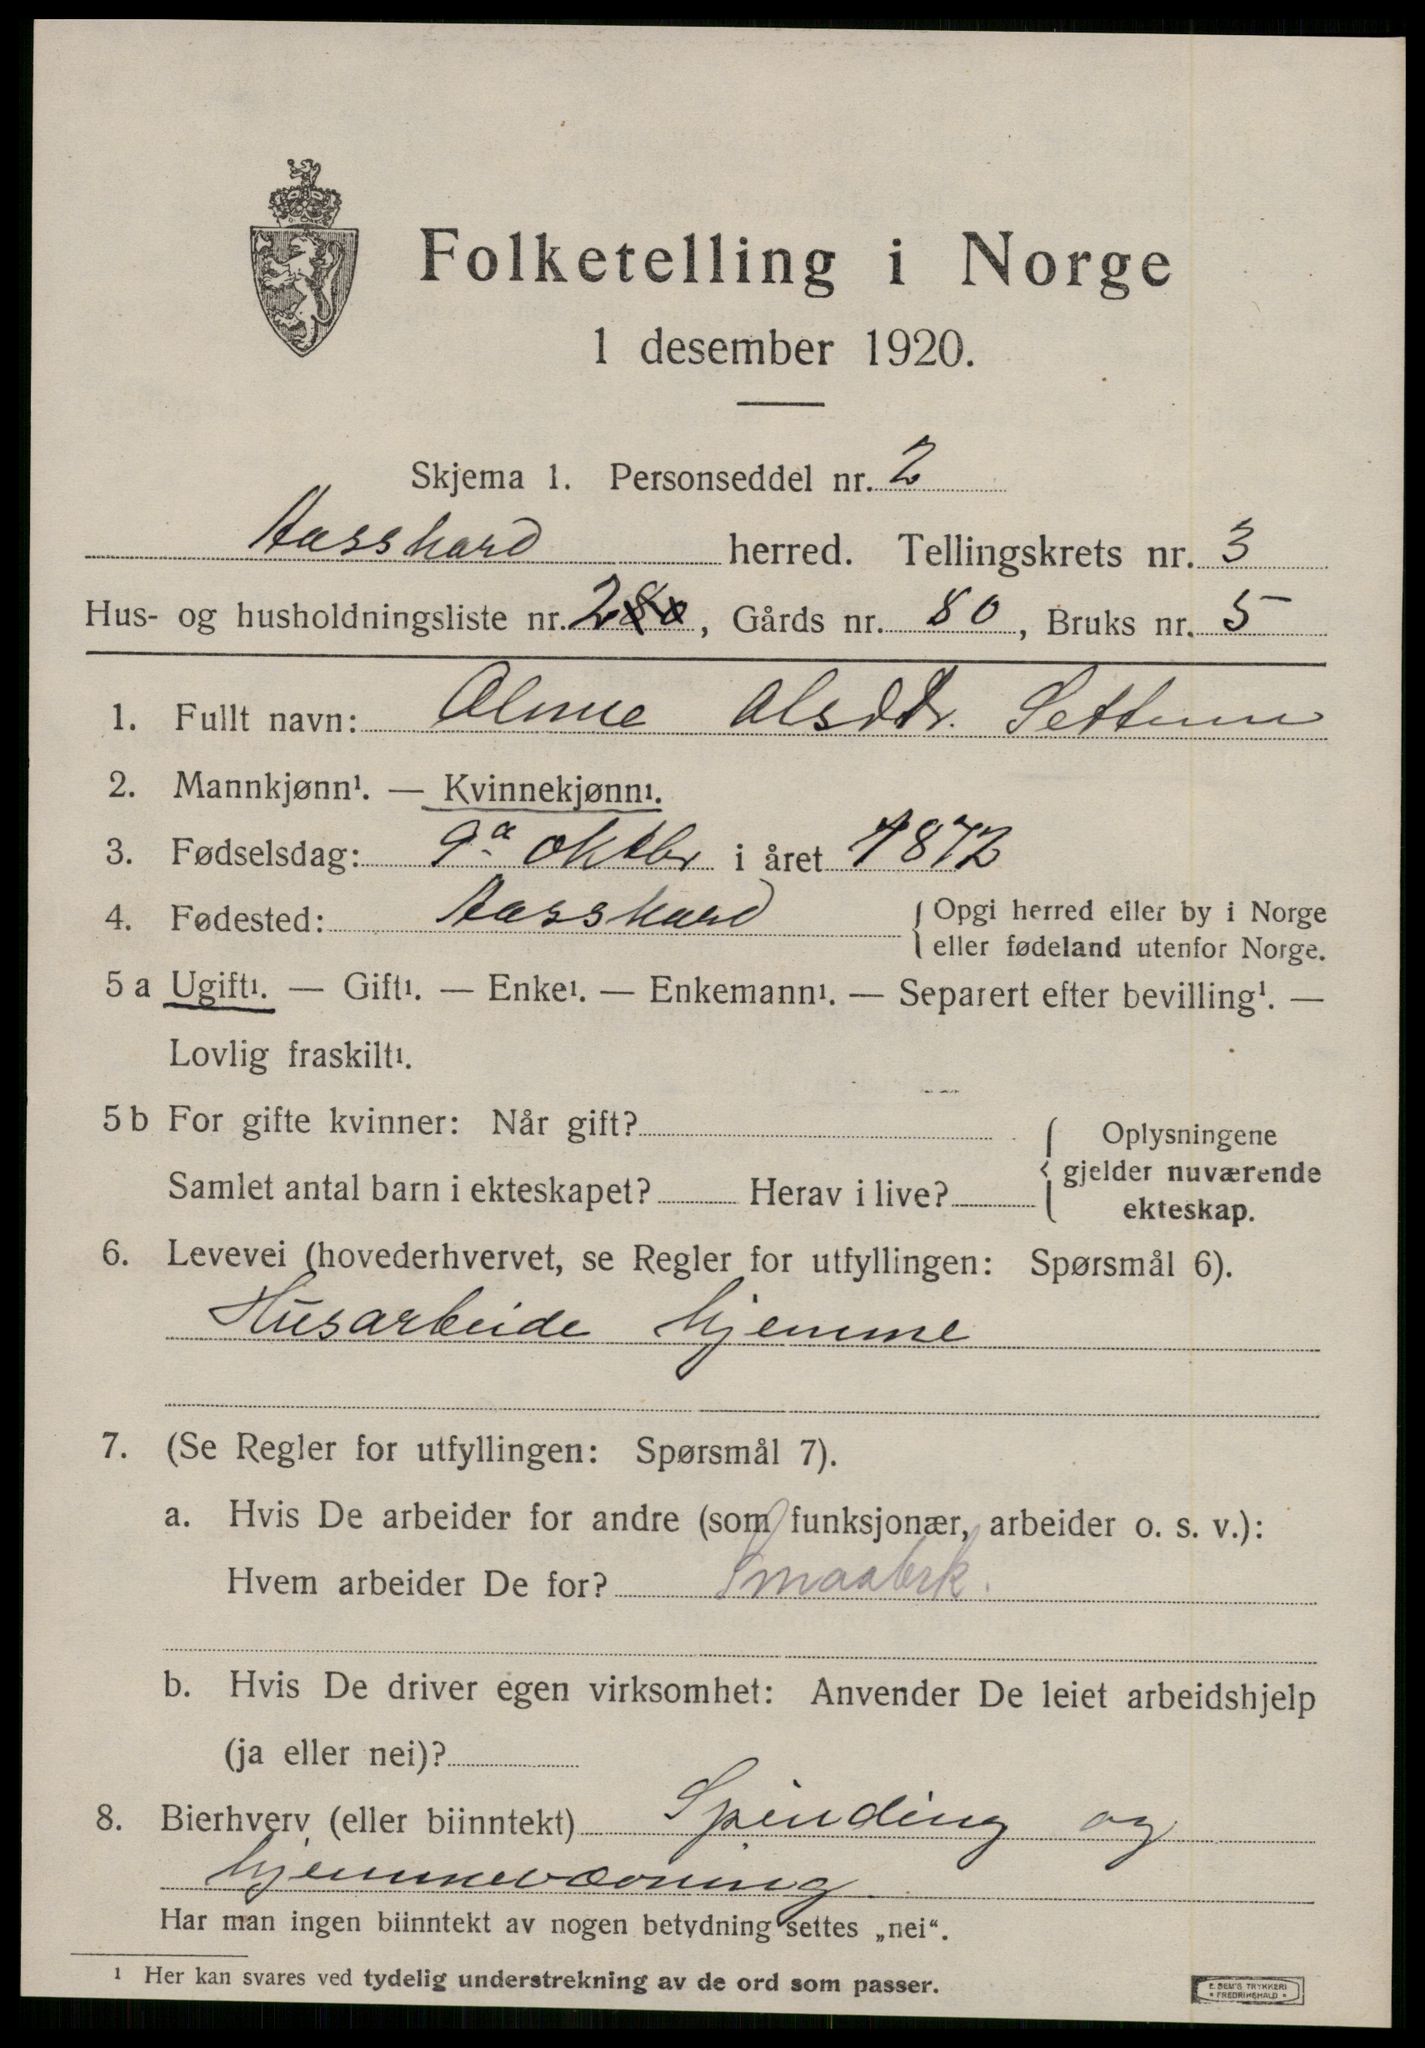 Folketelling i Norge
1 desember 1920.
Skjema 1. Personseddel nr. 2
Aasskard herred. Tellingskrets nr. 3
Hus- og husholdningsliste nr. 2, Gårds nr. 80, Bruks nr. 5
1. Fullt navn: Olsdtr.
2. Mannkjønn¹. — Kvinnekjønn¹.
3. Fødselsdag: 9 oktbr i året 1872
4. Fødested: Aasskard { Opgi herred eller by i Norge
eller fødeland utenfor Norge.
5 a Ugift¹. — Gift¹. — Enke¹. — Enkemann¹. — Separert efter bevilling¹. —
Lovlig fraskilt¹.
5 b For gifte kvinner: Når gift? { Oplysningene
gjelder nuværende
Samlet antal barn i ekteskapet? Herav i live?
ekteskap.
6. Levevei (hovederhvervet, se Regler for utfyllingen: Spørsmål 6).
Husarbeide hjemme
7. (Se Regler for utfyllingen: Spørsmål 7).
a. Hvis De arbeider for andre (som funksjonær, arbeider o. s. v.):
Hvem arbeider De for? Smaabrk.
b. Hvis De driver egen virksomhet: Anvender De leiet arbeidshjelp
(ja eller nei)?
8. Bierhverv (eller biinntekt) Spinding og
hjemmevævning
Har man ingen biinntekt av nogen betydning settes „nei“.
¹ Her kan svares ved tydelig understrekning av de ord som passer.
E. SEM'S TRYKKERI
• FREDRIKSHALD •